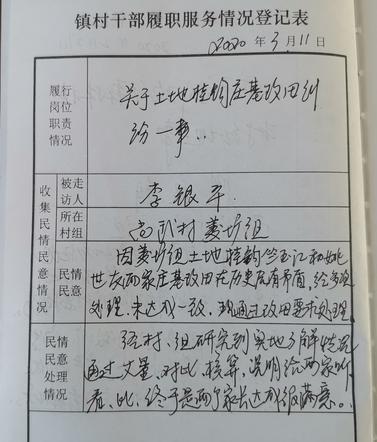 镇村干部履职服务情况登记表
2020 年 3 月 11 日
履行
岗位
职责
情况
关于土地挂钩庄基改田纠
纷一事..
收集民情民意情况
被走
访人
李银平
所在
村组
尚武村姜圻组
民情
民意
因姜圻组土地挂钩 江和姚
世友两家庄基改田在历史原有矛盾,经多次
处理,未达成一致,现通过改田要求处理
民情
民意
处理
情况
经村、组研究到实地了解情况
通过丈量、对比、核算,说明给两家听
看,此、终于是两个家长达成很满意。